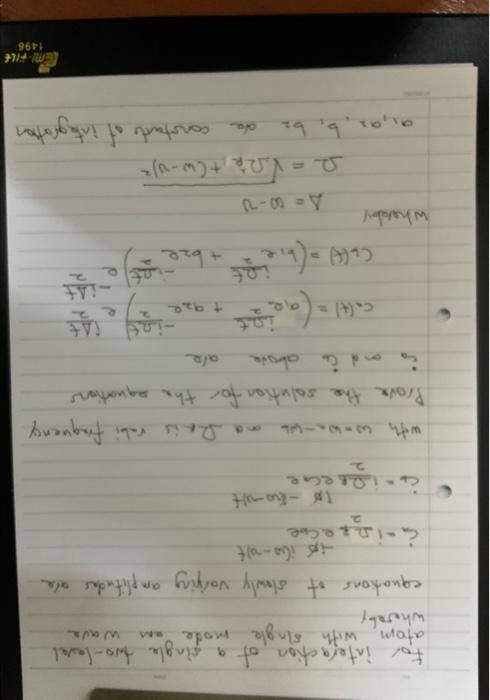 For interaction of a single two-level
atom with single mode em wave
whereby
equations of slowly varying amplitudes are
ċa = i ΩR/2 e^(-iφ) Cb e^(i(ω-ν)t)
ċb = i ΩR/2 e^(iφ) Ca e^(-i(ω-ν)t)
with ω=ωa-ωb and ΩR is rabi frequency
Prove the solution for the equations
ċa and ċb above are
Ca(t) = (a1 e^(iΩt/2) + a2 e^(-iΩt/2)) e^(iΔt/2)
Cb(t) = (b1 e^(iΩt/2) + b2 e^(-iΩt/2)) e^(-iΔt/2)
whereby
Δ = ω-ν
Ω = √(ΩR² + (ω-ν)²)
a1, a2, b1, b2 are constants of integration
1496